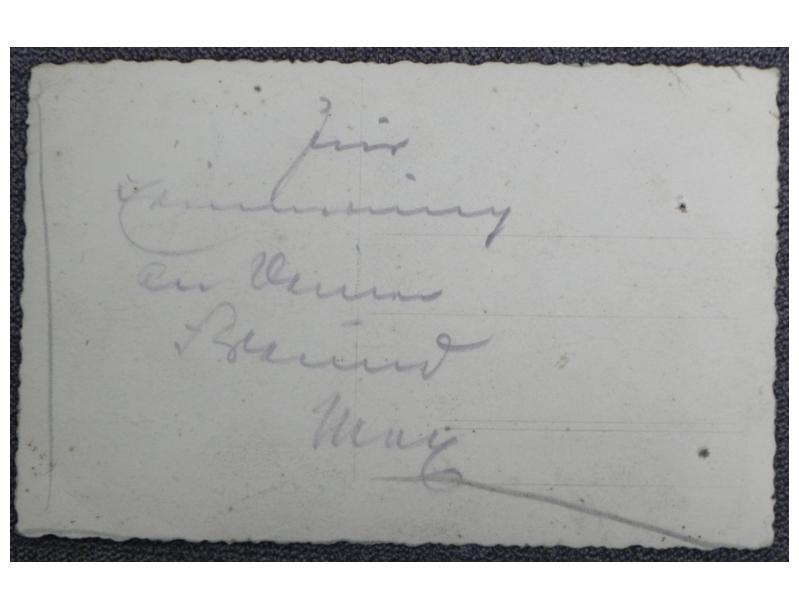 Zur
Erinnerung
an Deinen
Freund
Max